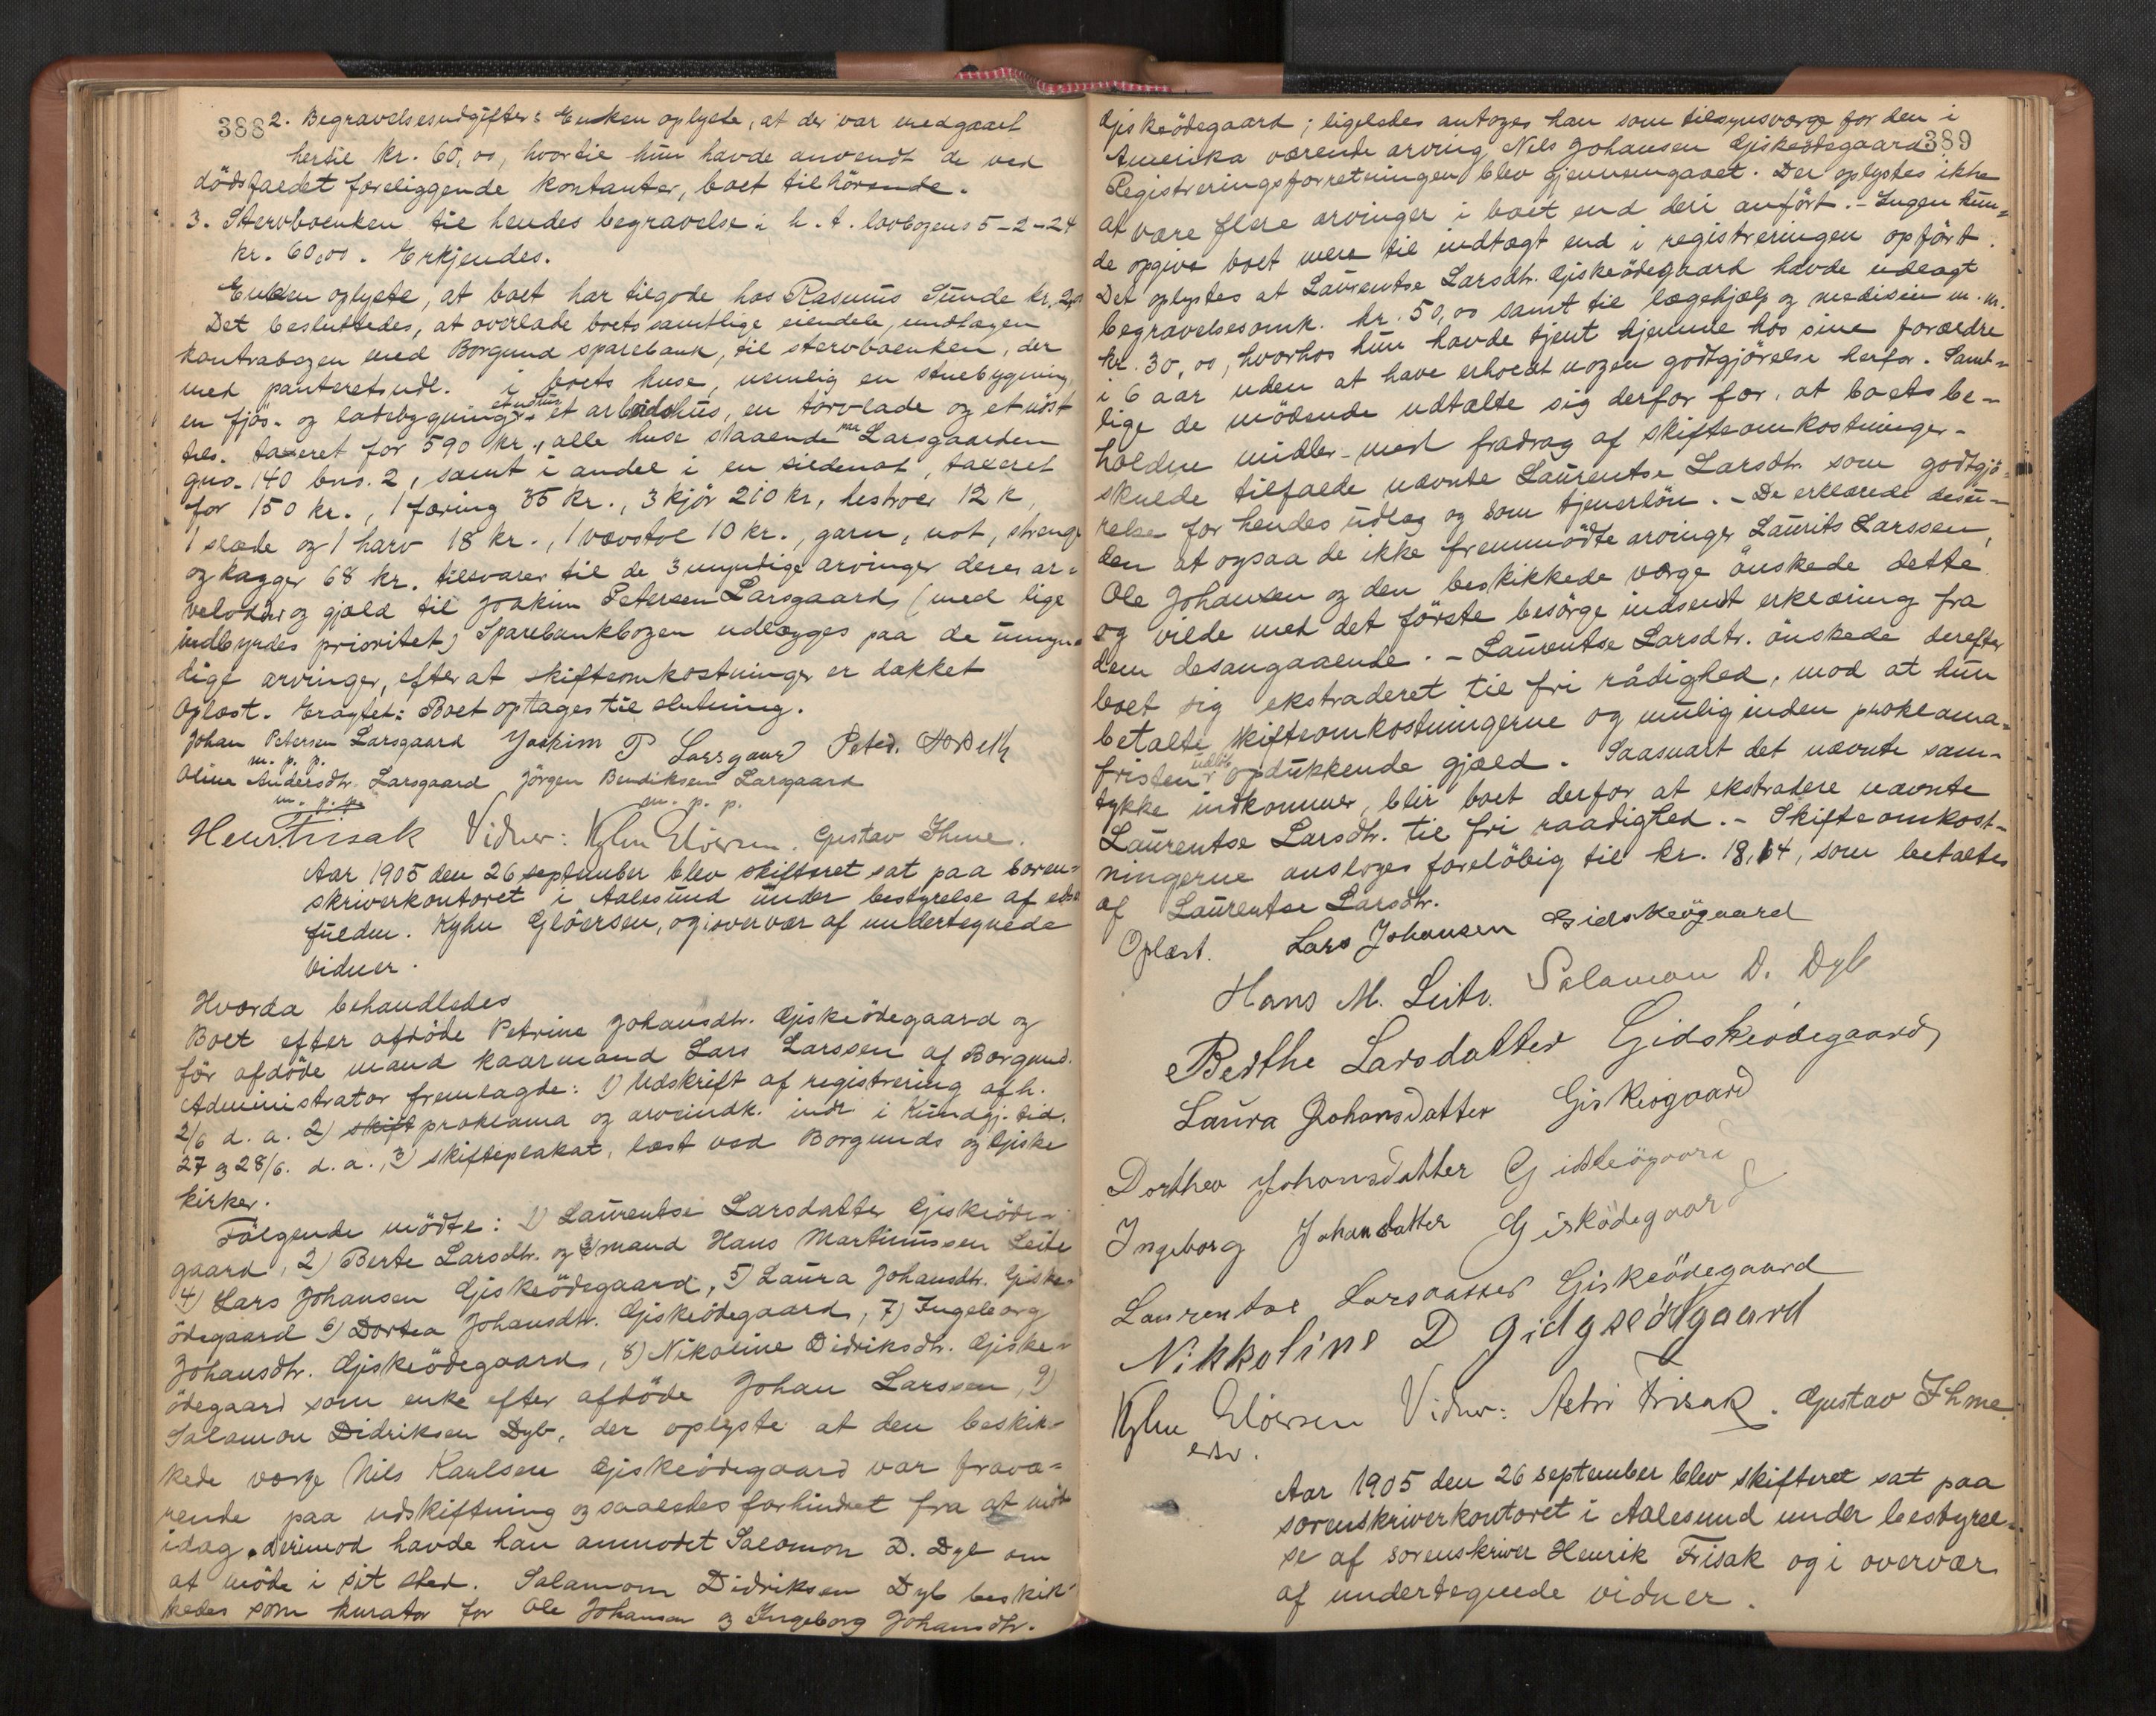 388
2. Begravelsesudgifter: Enken oplyste, at der var medgaaet
hertil kr. 60,00, hvortil hun havde anvendt de ved
dödsfaldet foreliggende kontanter, boet tilhörende.
3. Stervboenken til hendes begravelse i h. t. lovbogens 5-2-24
kr. 60,00. Erkjendes.
Enken oplyste, at boet har tilgode hos Rasmus Sunde kr.
Det besluttedes, at overlade boets samtlige eiendele, undtagen
kontrabogen med Borgund sparebank, til stervboenken, der
med panteret udl. i boets huse, nemlig en stuebygning,
en fjös- og ladebygning, et arbeidshus, en törvlade og et nöst
tils. taxeret for 590 kr., alle huse staaende paa Larsgaarden
gno. 140 bno. 2, samt i andel i en sildenot, taxeret
for 150 kr., 1 færing 35 kr., 3 kjör 210 kr., hestvoer 12 k,
1 slæde og 1 harv 18 kr., 1 vævstol 10 kr., garn, not, streng
og kagger 68 kr. tilsvarer til de 3 umyndige arvinger deres ar-
velodder og gjæld til Joakim Petersen Larsgaard, (med lige
indbyrdes prioritet) Sparebankbogen udlægges paa de umyn-
dige arvinger, efter at skifteomkostninger er dækket
Oplæst. Eragtet: Boet optages til slutning.
Johan Petersen Larsgaard Joakim P Larsgaard Peter
m. p. p.
Oline Andersdtr. Larsgaard Jörgen Bendiksen Larsgaard
m. p. p. m. p. p.
Henr. Frisak Vidner: Kyhn Glöersen. Gustav Ihme.
Aar 1905 den 26 september blev skifteret sat paa soren-
skriverkontoret i Aalesund under bestyrelse af edsv.
fuldm. Kyhn Glöersen, og i overvær af undertegnede
vidner.
Hvorda behandledes
Boet efter afdöde Petrine Johansdtr. Gjskeödegaard og
för afdöde mand kaarmand Lars Larssen af Borgund.
Administrator fremlagde: 1) Udskrift af registrering afh.
2/6 d. a. 2) skift proklama og arveindk. indr. i Kundgj. tid.
27 og 28/6. d. a., 3) skifteplakat, læst ved Borgunds og Gjske
kirker.
Fölgende mödte: 1) Laurentse Larsdatter Gjskeöde-
gaard, 2) Berte Larsdtr. og 3) mand Hans Martinussen Leite
4) Lars Johansen Gjskeödegaard, 5) Laura Johansdtr. Gjske-
ödegaard 6) Dortea Johansdtr. Gjskeödegaard, 7) Ingeborg
Johansdtr. Gjskeödegaard, 8) Nikoline Didriksdtr. Gjske-
ödegaard som enke efter afdöde Johan Larssen, 9)
Salamon Didriksen Dyb, der oplyste at den beskik-
kede værge Nils Karlsen Gjskeödegaard var fravæ-
rende paa udskiftning og saaledes forhindret fra at möde
idag, derimod havde han anmodet Salomon D. Dyb om
at möde i sit sted. Salamon Didriksen Dyb beskik-
kedes som kurator for Ole Johansen og Ingeborg Johansdtr.
389
Gjskeödegaard; ligeledes antoges han som tilsynsværge for den i
Amerika værende arving Nils Johansen Gjskeödegaard.
Registreringsforretningen blev gjennemgaaet. Der oplystes ikke
at være flere arvinger i boet end deri anfört. - Ingen kun-
de opgive boet mere til indtægt end i registreringen opfört.
Det oplystes at Laurentse Larsdtr. Gjskeödegaard havde udlagt
begravelsesomk. kr. 50,00 samt til lægehjælp og medisin m. m.
kr. 30,00, hvorhos hun havde tjent hjemme hos sine forældre
i 6 aar uden at have erholdt nogen godtgjörelse herfor. Samt-
lige de mödende udtalte sig derfor for, at boets be-
holdne midler - med fradrag af skifteomkostninger -
skulde tilfalde nævnte Laurentse Larsdtr. som godtgjö-
relse for hendes udlæg og som tjenerlön. - De erklærede desu-
den at ogsaa de ikke fremmödte arvinger Laurits Larssen,
Ole Johansen og den beskikkede værge önskede dette
og vilde med det förste besörge indsendt erklæring fra
dem desangaaende. - Laurentse Larsdtr. önskede derefter
boet sig ekstraderet til fri rådighed, mod at hun
betalte skifteomkostningerne og mulig inden proklama-
fristens udlöb opdukkende gjæld. Saasnart det nævnte sam-
tykke indkommer, blir boet derfor at ekstradere nævnte
Laurentse Larsdtr. til fri raadighed. - Skifteomkost-
ningerne ansloges forelöbig til kr. 18,64, som betaltes
af Laurentse Larsdtr.
Oplæst. Lars Johansen Gidskeögaard
Hans M. Leite. Salamon D. Dyb
Berthe Larsdatter Gidskeödegaard
Laura Johansdatter Giskeøgaard
Dorthea Johansdatter Gidskeögaard
Ingeborg Johansdatter Gisködegaard
Laurentse Larsdatter Giskeödegaard
Nikkoline D Gidgseödgaard
Kyhn Glöersen Vidner: Frisak. Gustav Ihme.
edsv.
Aar 1905 den 26 september blev skifteret sat paa
sorenskriverkontoret i Aalesund under bestyrel-
se af sorenskriver Henrik Frisak og i overvær
af undertegnede vidner.